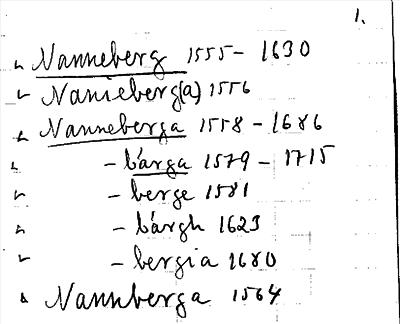 1.
Nanneberg 1555-1630
Nanieberg(a) 1556
Nanneberga 1558-1686
-bärga 1579-1715
-berge 1581
-bärgh 1623
-bergia 1680
Nannberga 1564